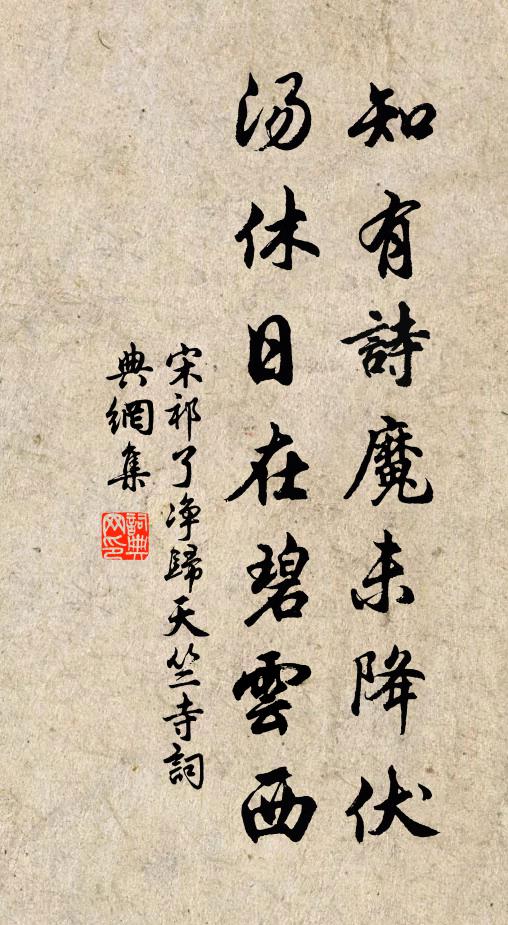 知有詩魔未降伏
湯休日在碧雲西
宋祁了净歸天竺寺詞
典網集
詞典網印